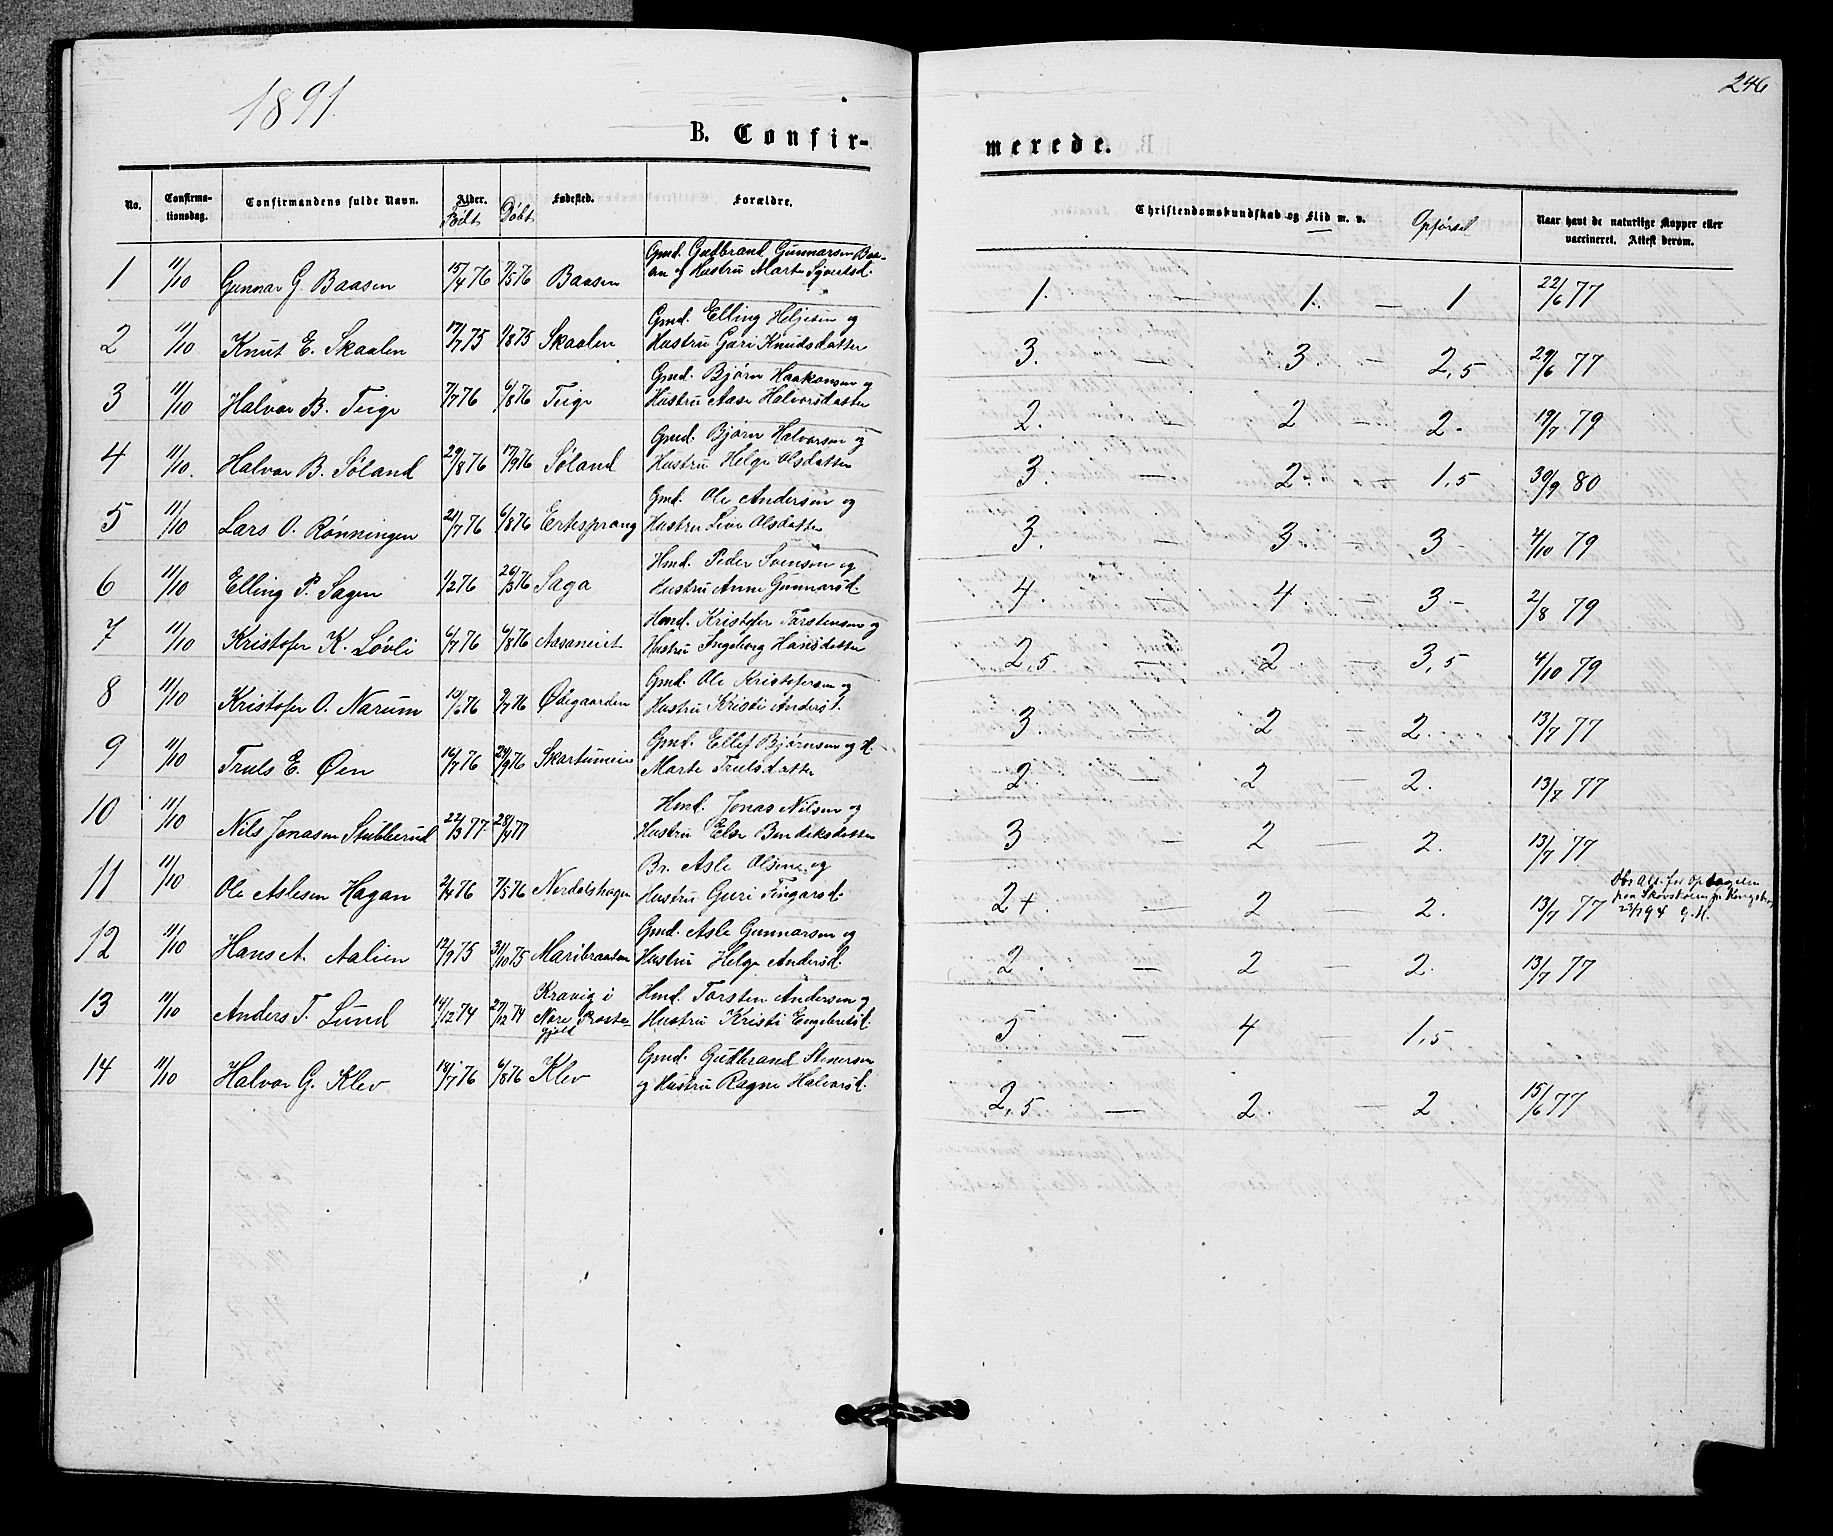 1891.
246
B. Confir-
merede.
No.
Confirma-
tionsdag.
Confirmandens fulde Navn.
Alder.
Født
Døbt
Fødested.
Forældre.
Christendomskundskab og Flid m. v.
Opførsel
Naar havt de naturlige Kopper eller
vaccineret. Attest derom.
Gmd. Gudbrand Gunnarsen Baa-
1 11/10 Gunnar G. Baasen 15/4 76 7/5 76 Baasen sen og Hustru Marte Sjvertsd. 1. 1. — 1 22/6 77
Gmd. Elling Heljesen og
2 11/10 Knut E. Skaalen 17/7 75 1/8 75 Skaalen Hustru Guri Knudsdatter 3. — 3. — 2,5 29/6 77
Gmd. Bjørn Haakonsen og
3 11/10 Halvor B. Teige 7/7 76 6/8 76 Teige Hustru Aase Halvorsdatter 2. — 2 — 2. 19/7 79
Gmd. Bjørn Halvorsen og
4 11/10. Halvor B. Søland 29/8 76 17/9 76 Søland Hustru Helge Olsdatter 3. — 2. — 1,5 30/9 80
Gmd. Ole Andersen og
5 11/10 Lars O. Rønningen 21/7 76 6/8 76 Ertesprang Hustru Live Olsdatter 3. — 3 — 3 4/10 79
Hmd. Peder Svensen og
6 11/10 Elling P. Sagen 1/2 76 26/3 76 Saga Hustru Anne Gunnarsd. 4. — 4 — 3 2/8 79
Hmd. Kristofer Torstensen og
7 11/10 Kristofer K. Løvli 6/7 76 6/8 76 Aasaneiet Hustru Ingeborg Hansdatter 2,5 — 2 — 3,5 4/10 79
Gmd. Ole Kristofersen og
8 11/10 Kristofer O. Narum 10/6 76 9/7 76 Ødegaarden Hustru Kristi Andersd. 3. — 2 — 2. 13/7 77
Gmd. Ellef Bjørnsen og H.
9 11/10 Truls E. Øen 16/7 76 24/9 76 Skartumeie Marte Trulsdatter 2. — 2 — 2. 13/7 77
Hmd. Jonas Nilsen og
10 11/10 Nils Jonasen Stubberud 22/3 77. 28/4 77 Hustru Else Bendeksdatter 3 — 2 — 2. 13/7 77
Br. Asle Olsen og
11 11/10 Ole Aslesen Hagan 2/4 76 7/5 76 Nordalshagen Hustru Guri Tingarsd. 2+. — 2 — 2. 13/7 77
Att. for Optagelse
paa Skovskolen paa Kongsberg
23/7 94 G.H.
Gmd. Asle Gunnarsen og
12 11/10 Hans A. Aalien 12/9 75 31/10 75 Maribraaten Hustru Helge Andersd. 2. — 2 — 2. 13/7 77
Kravig i Hmd. Torsten Andersen og
13 11/10 Anders T. Lund 14/12 74 27/12 74 Nore Præste- Hustru Kristi Engebretsd. 5 — 4 — 1,5
gjeld
Gmd. Gudbrand Stenersen
14 11/10 Halvor G. Klev 18/7 76 6/8 76 Klev og Hustru Ragne Halvorsd. 2,5 — 2. — 2 15/6 77